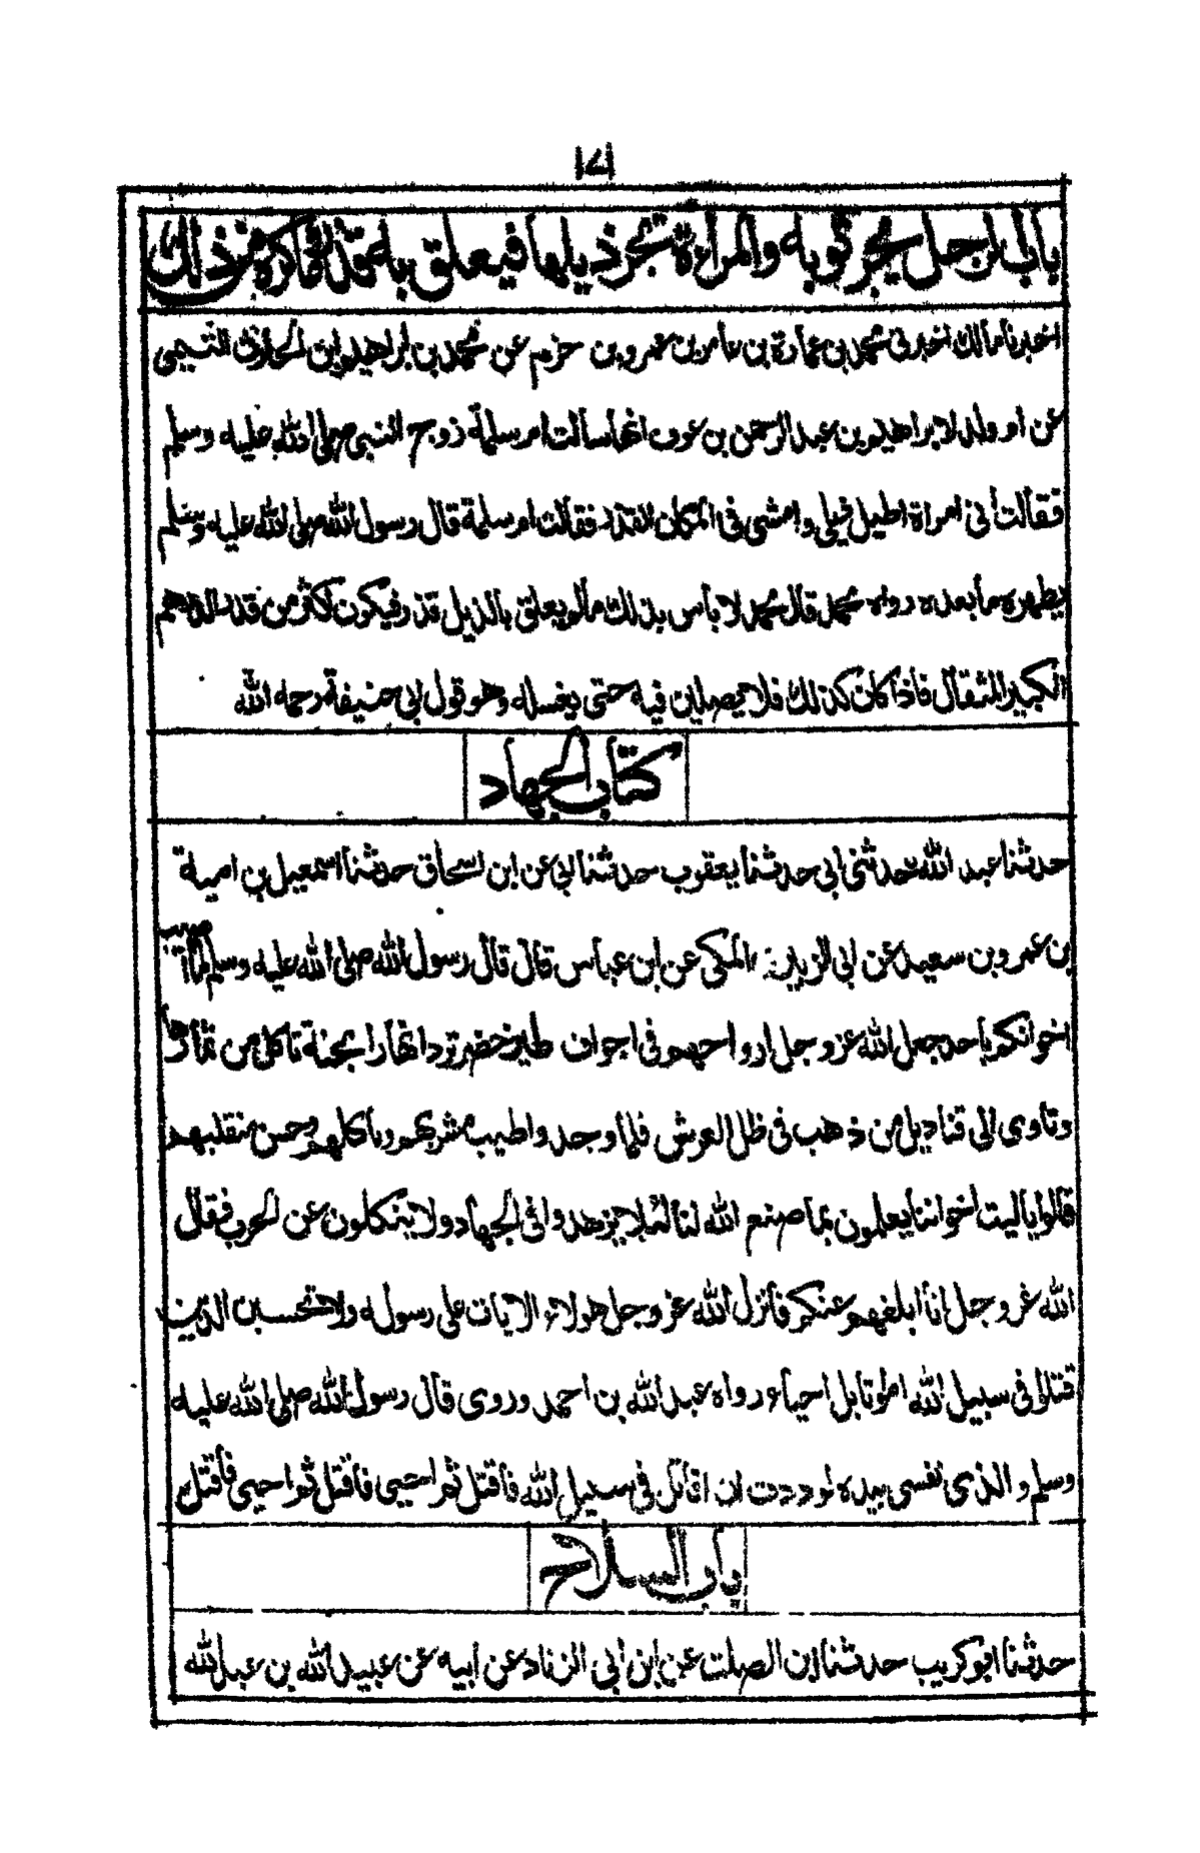 ١٧١
باب الرجل يجر ثوبه والمراءة تجر ذيلها فيعلق به قذر وما كره من ذلك
اخبرنا مالك اخبرنی محمد بن عمارة بن عامر بن عمرو بن حزم عن محمد بن ابراهيم بن الحارث التيمی
عن ام ولد لابراهيم بن عبد الرحمن بن عوف انها سالت ام سلمة زوج النبی صلی الله عليه وسلم
فقالت انی امراة اطيل ذيلی وامشی فی المكان القذر فقالت ام سلمة قال رسول الله صلی الله عليه وسلم
يطهره ما بعده رواه محمد قال محمد لا باس بذلك مالم يعلق بالذيل قذر فيكون اكثر من قدر الدرهم
الكبير المثقال فاذا كان كذلك فلا يصلين فيه حتی يغسله وهو قول ابی حنيفة رحمه الله
كتاب الجهاد
حدثنا عبد الله حدثنی ابی حدثنا يعقوب حدثنا ابی عن ابن اسحاق حدثنا اسمعيل بن امية
بن عمرو بن سعيد عن ابی الزبير المكی عن ابن عباس قال قال رسول الله صلی الله عليه وسلم لما اصيب
اخوانكم باحد جعل الله عز وجل ارواحهم فی اجواف طير خضر ترد انهار الجنة تاكل من ثمارها
وتاوی الی قناديل من ذهب فی ظل العرش فلما وجدوا طيب مشربهم وماكلهم وحسن منقلبهم
قالوا ياليت اخواننا يعلمون بما صنع الله لنا لئلا يزهدوا فی الجهاد ولا ينكلون عن الحرب فقال
الله عز وجل انا ابلغهم عنكم فانزل الله عز وجل هولاء الايات علی رسوله ولا تحسبن الذين
قتلوا فی سبيل الله امواتا بل احياء رواه عبد الله بن احمد وروی قال رسول الله صلی الله عليه
وسلم والذی نفسی بيده لوددت ان اقاتل فی سبيل الله فاقتل ثم احيی فاقتل ثم احيی فاقتل
باب السلاح
حدثنا ابو كريب حدثنا ابن الصلت عن ابن ابی الزناد عن ابيه عن عبيد الله بن عبد الله